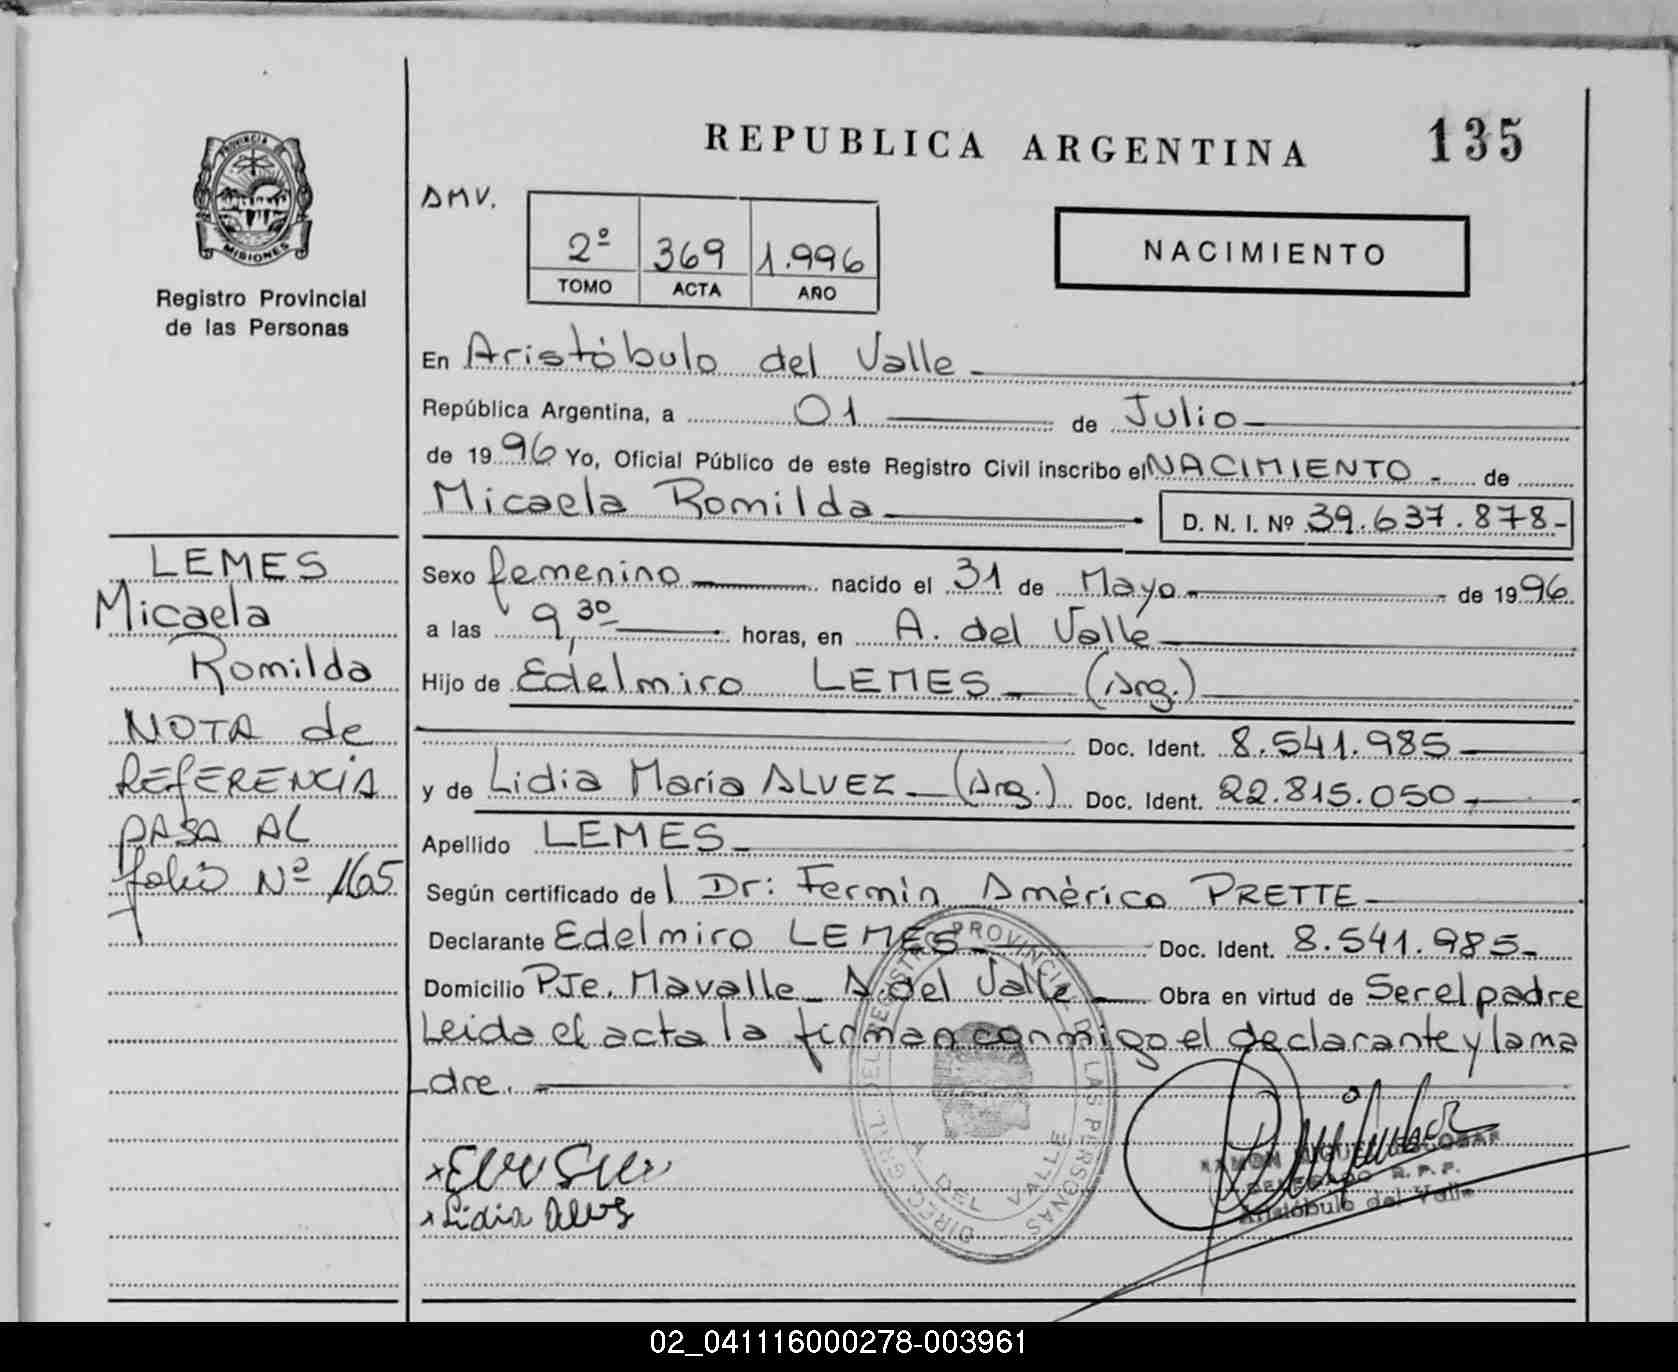 REPUBLICA ARGENTINA
135
PROVINCIA
MISIONES
Registro Provincial
de las Personas
AMV.
2º 369 1.996
TOMO ACTA AÑO
NACIMIENTO
En Aristóbulo del Valle
República Argentina, a 01 de Julio
de 1996 Yo, Oficial Público de este Registro Civil inscribo el NACIMIENTO de
Micaela Romilda D. N. I. Nº 39.637.878-
Sexo femenino nacido el 31 de Mayo de 1996
a las 9,30 horas, en A. del Valle
Hijo de Edelmiro LEMES (Arg.)
Doc. Ident. 8.541.985
y de Lidia María ALVEZ (Arg.) Doc. Ident. 22.815.050
Apellido LEMES
Según certificado del Dr: Fermín Américo PRETTE
Declarante Edelmiro LEMES Doc. Ident. 8.541.985-
Domicilio PJe. Mavalle A. del Valle Obra en virtud de Ser el padre
Leida el acta la firman conmigo el declarante y la ma
dre.
LEMES
Micaela
Romilda
NOTA de
REFERENCIA
PASA AL
folio Nº 165
Lidia
DIREC. GRAL. DEL REGISTRO PROVINCIAL DE LAS PERSONAS
A DEL VALLE
RAMON MIGUEL ESCOBAR
DELEGADO R.P.P.
Aristóbulo del Valle
02_041116000278-003961